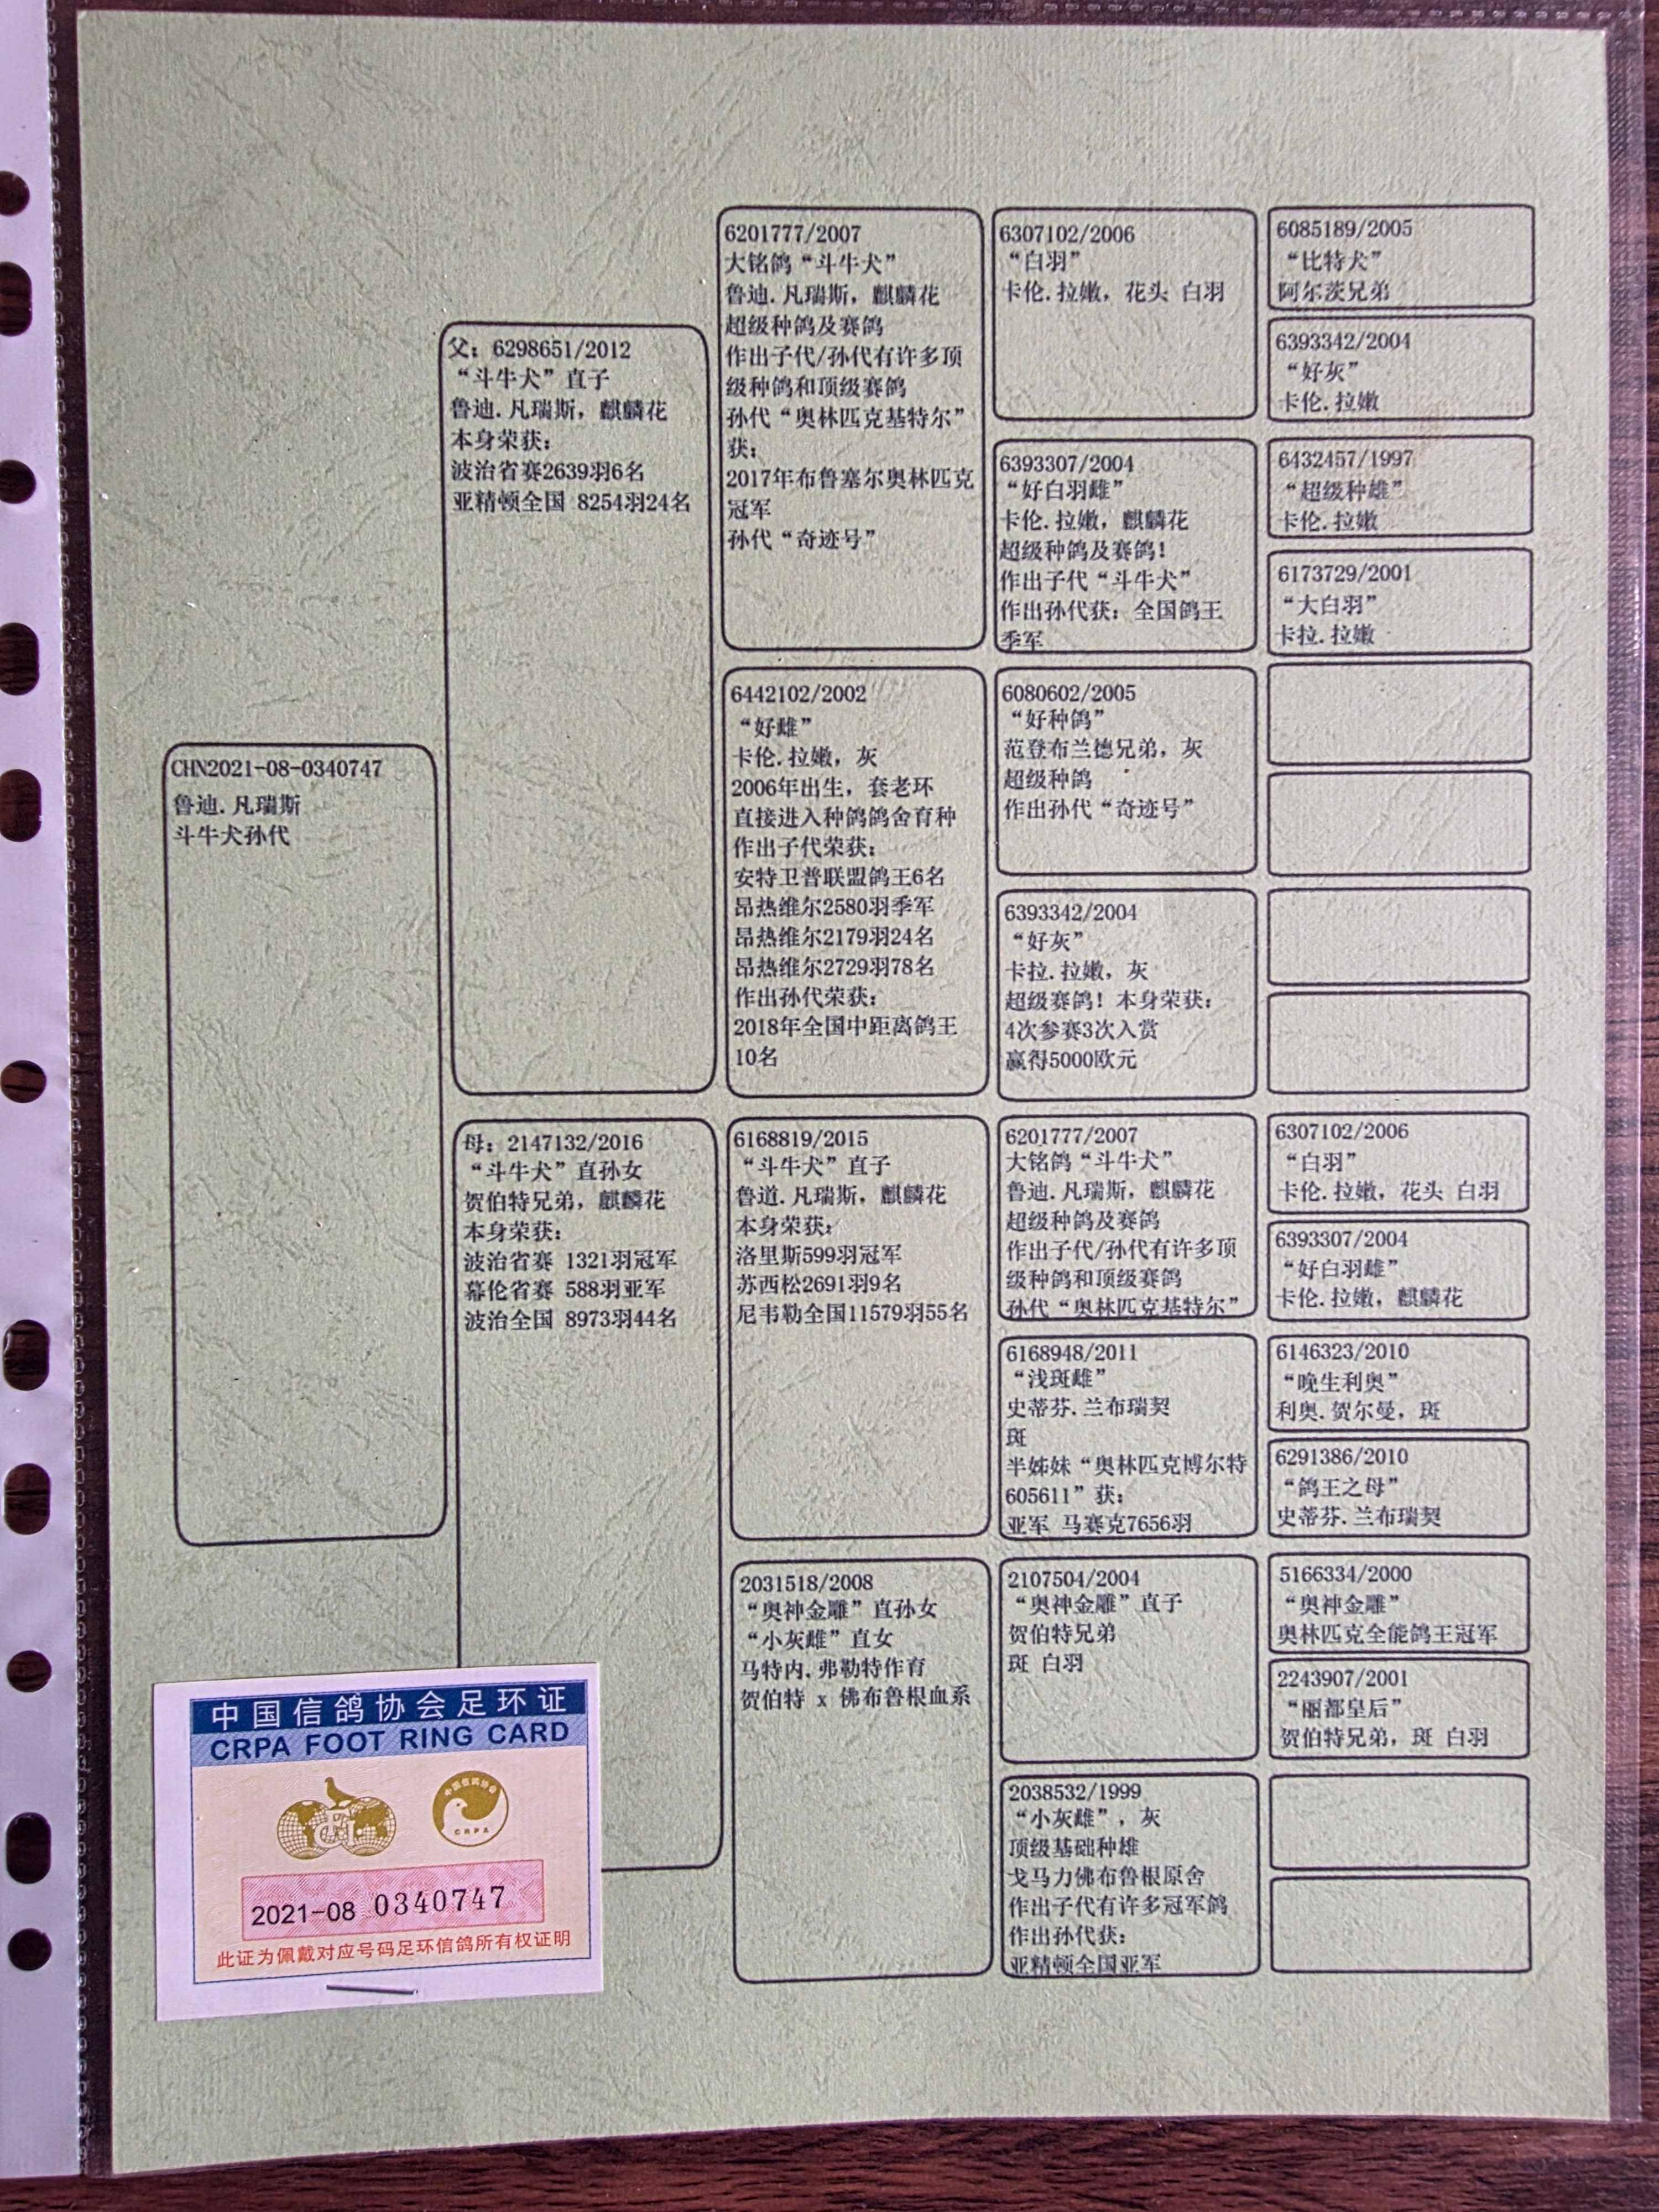 CHN2021-08-0340747
鲁迪.凡瑞斯
斗牛犬孙代
父：6298651/2012
“斗牛犬”直子
鲁迪.凡瑞斯，麒麟花
本身荣获：
波治省赛2639羽6名
亚精顿全国 8254羽24名
母：2147132/2016
“斗牛犬”直孙女
贺伯特兄弟，麒麟花
本身荣获：
波治省赛 1321羽冠军
幕伦省赛 588羽亚军
波治全国 8973羽44名
6201777/2007
大铭鸽“斗牛犬”
鲁迪.凡瑞斯，麒麟花
超级种鸽及赛鸽
作出子代/孙代有许多顶
级种鸽和顶级赛鸽
孙代“奥林匹克基特尔”
获：
2017年布鲁塞尔奥林匹克
冠军
孙代“奇迹号”
6442102/2002
“好雌”
卡伦.拉嫩，灰
2006年出生，套老环
直接进入种鸽鸽舍育种
作出子代荣获：
安特卫普联盟鸽王6名
昂热维尔2580羽季军
昂热维尔2179羽24名
昂热维尔2729羽78名
作出孙代荣获：
2018年全国中距离鸽王
10名
6168819/2015
“斗牛犬”直子
鲁道.凡瑞斯，麒麟花
本身荣获：
洛里斯599羽冠军
苏西松2691羽9名
尼韦勒全国11579羽55名
2031518/2008
“奥神金雕”直孙女
“小灰雌”直女
马特内.弗勒特作育
贺伯特 x 佛布鲁根血系
6307102/2006
“白羽”
卡伦.拉嫩，花头 白羽
6393307/2004
“好白羽雌”
卡伦.拉嫩，麒麟花
超级种鸽及赛鸽！
作出子代“斗牛犬”
作出孙代获：全国鸽王
季军
6080602/2005
“好种鸽”
范登布兰德兄弟，灰
超级种鸽
作出孙代“奇迹号”
6393342/2004
“好灰”
卡拉.拉嫩，灰
超级赛鸽！本身荣获：
4次参赛3次入赏
赢得5000欧元
6201777/2007
大铭鸽“斗牛犬”
鲁迪.凡瑞斯，麒麟花
超级种鸽及赛鸽
作出子代/孙代有许多顶
级种鸽和顶级赛鸽
孙代“奥林匹克基特尔”
6168948/2011
“浅斑雌”
史蒂芬.兰布瑞契
斑
半姊妹“奥林匹克博尔特
605611”获：
亚军 马赛克7656羽
2107504/2004
“奥神金雕”直子
贺伯特兄弟
斑 白羽
2038532/1999
“小灰雌”，灰
顶级基础种雄
戈马力佛布鲁根原舍
作出子代有许多冠军鸽
作出孙代获：
亚精顿全国亚军
6085189/2005
“比特犬”
阿尔茨兄弟
6393342/2004
“好灰”
卡伦.拉嫩
6432457/1997
“超级种雄”
卡伦.拉嫩
6173729/2001
“大白羽”
卡拉.拉嫩
6307102/2006
“白羽”
卡伦.拉嫩，花头 白羽
6393307/2004
“好白羽雌”
卡伦.拉嫩，麒麟花
6146323/2010
“晚生利奥”
利奥.贺尔曼，斑
6291386/2010
“鸽王之母”
史蒂芬.兰布瑞契
5166334/2000
“奥神金雕”
奥林匹克全能鸽王冠军
2243907/2001
“丽都皇后”
贺伯特兄弟，斑 白羽
中国信鸽协会足环证
CRPA FOOT RING CARD
中国信鸽协会
CRPA
2021-08 0340747
此证为佩戴对应号码足环信鸽所有权证明